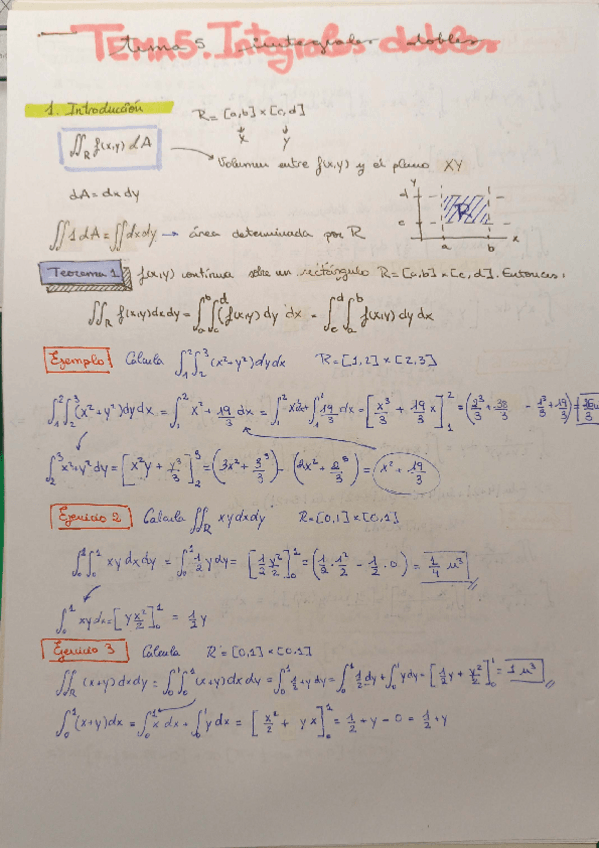 TEMA 5. Integrales dobles
tema 5 integrales dobles
1. Introducción
R = [a,b] × [c,d]
x y
∬_R f(x,y) dA
Volumen entre f(x,y) y el plano XY
dA = dx dy
∬ 1 dA = ∬ dx dy → área determinada por R
y
d
c
R
a b x
Teorema 1 f(x,y) continua sobre un rectángulo R = [a,b] × [c,d]. Entonces:
∬_R f(x,y) dx dy = ∫_a^b ∫_c^d f(x,y) dy dx = ∫_c^d ∫_a^b f(x,y) dy dx
Ejemplo Calcula ∫_1^2 ∫_2^3 (x²-y²) dy dx R = [1,2] × [2,3]
∫_1^2 ∫_2^3 (x²+y²) dy dx = ∫_1^2 x² + 19/3 dx = ∫_1^2 x² dx + ∫_1^2 19/3 dx = [x³/3 + 19/3 x]_1^2
∫_2^3 x²+y² dy = [x²y + y³/3]_2^3 = (3x² + 3³/3) - (2x² + 2³/3) = x² + 19/3
Ejercicio 2 Calcula ∬_R xy dx dy R = [0,1] × [0,1]
∫_0^1 ∫_0^1 xy dx dy = ∫_0^1 1/2 y dy = [1/2 y²/2]_0^1 = (1/2 · 1²/2 - 1/2 · 0) = 1/4 u³
∫_0^1 xy dx = [y x²/2]_0^1 = 1/2 y
Ejercicio 3 Calcula R = [0,1] × [0,1]
∬_R (x+y) dx dy = ∫_0^1 ∫_0^1 (x+y) dx dy = ∫_0^1 1/2 + y dy = ∫_0^1 1/2 dy + ∫_0^1 y dy = [1/2 y + y²/2]_0^1 = 1 u³
∫_0^1 (x+y) dx = ∫_0^1 x dx + ∫_0^1 y dx = [x²/2 + yx]_0^1 = 1/2 + y - 0 = 1/2 + y